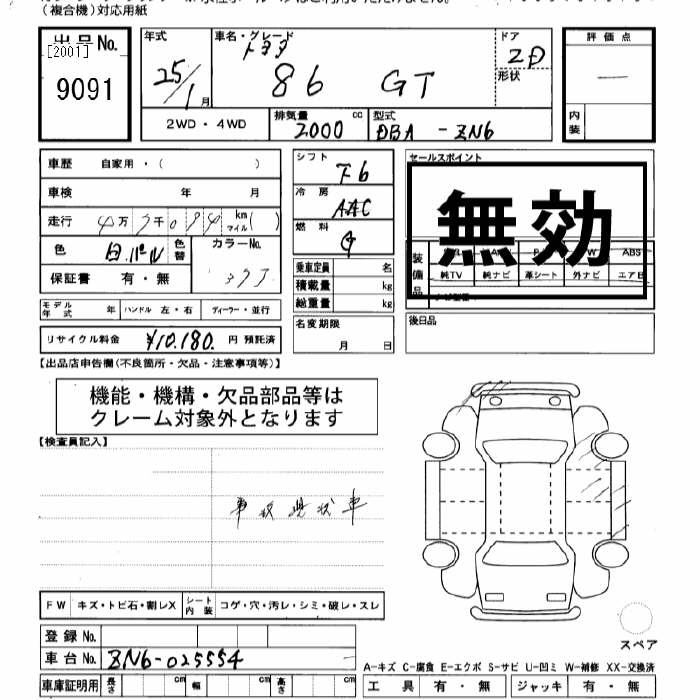 (複合機)対応用紙
出品 No.
[2001]
9091
年式
25/1月
車名・グレード
トヨタ
86 GT
ドア
2D
形状
評価点
内装
2WD・4WD
排気量
2000 cc
型式
DBA-ZN6
車歴 自家用・( )
車検 年 月
走行 万 千 km マイル( )
色 白.パール 色替 カラーNo.
37J
保証書 有・無
モデル年式 年 ハンドル 左・右 ディーラー・並行
リサイクル料金 ¥10,180. 円 預託済
シフト F6
冷房 AAC
燃料 G
乗車定員 名
積載量 kg
総重量 kg
名変期限
月 日
セールスポイント
無効
装備品
ABS
純TV 純ナビ 革シート 外ナビ エアB
後日品
【出品店申告欄(不良箇所・欠品・注意事項等)】
機能・機構・欠品部品等は
クレーム対象外となります
【検査員記入】
事故現状車
FW キズ・トビ石・割レX シート内装 コゲ・穴・汚レ・シミ・破レ・スレ
登録 No.
車台 No. ZN6-025554
車庫証明用 長さ cm 幅 cm 高さ cm
スペア
A-キズ C-腐食 E-エクボ S-サビ U-凹ミ W-補修 XX-交換済
工具 有・無 ジャッキ 有・無